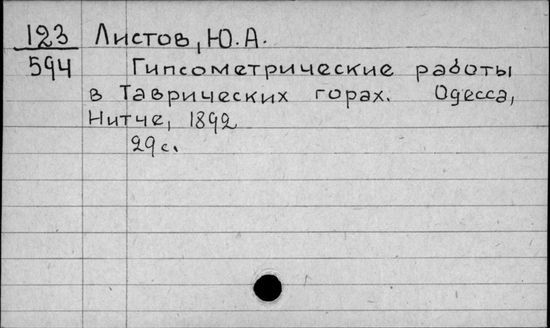 123 Листов, Ю.А.
594 Гипсометрические работы
в Таврических горах. Одесса,
Нитче, 1892
29с.